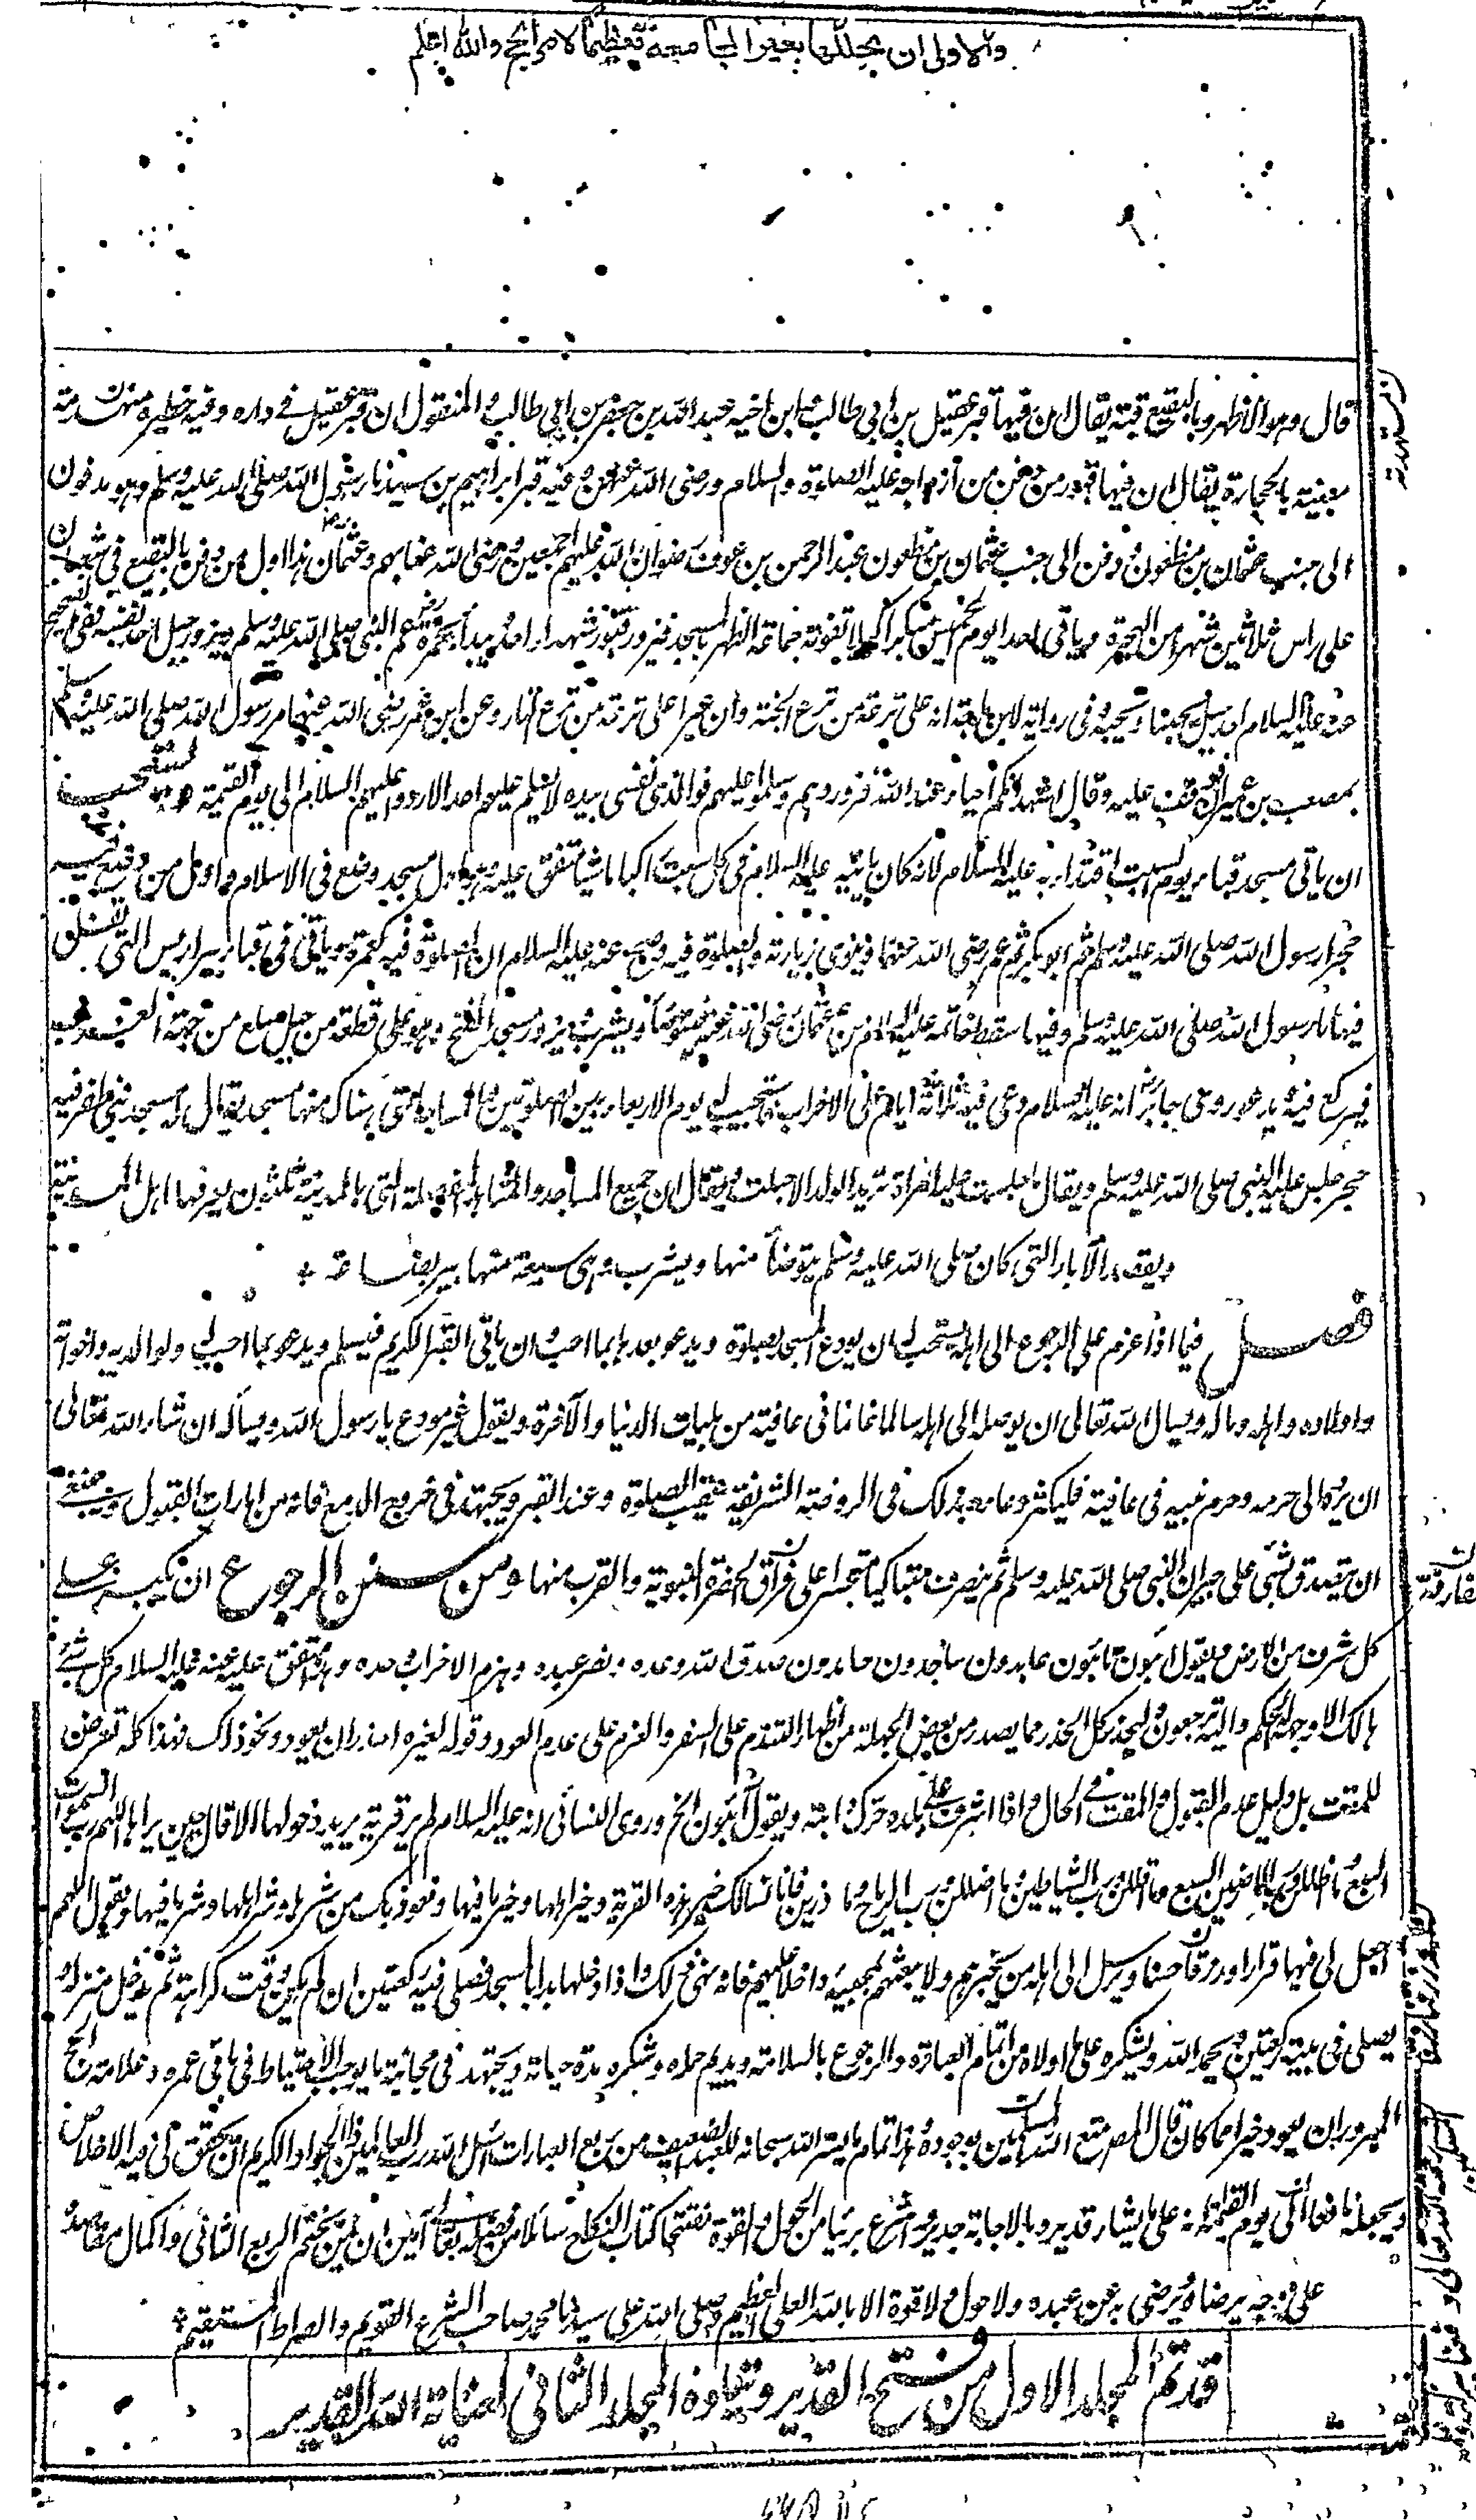 والاولى ان يحللها بغير المجامعة تعظيما لامر الحج والله اعلم
قال وهو الاظهر وبالبقيع قبة يقال ان فيها قبر عقيل بن ابي طالب وابن اخيه عبد الله بن جعفر بن ابي طالب والمنقول ان قبر عقيل في داره وفيه حظيرة مستهدمة
مبنية بالحجارة يقال ان فيها قبور من دفن من ازواجه عليه الصلوة والسلام ورضي الله عنهن وفيه قبر ابراهيم بن سيدنا رسول الله صلى الله عليه وسلم وهو مدفون
الى جنب عثمان بن مظعون ودفن الى جنب عثمان بن مظعون عبد الرحمن بن عوف رضوان الله عليهم اجمعين ورضي الله عنا بهم وعثمان هذا اول من دفن بالبقيع في شعبان
على راس ثلاثين شهرا من الهجرة وياتي احدا يوم الخميس مبكرا كيلا تفوته جماعة الظهر بالمسجد فيزور قبور شهداء احد يبدأ بحمزة عم النبي صلى الله عليه وسلم ويزور جبل احد نفسه ففي الصحيح
عنه عليه السلام احد جبل يحبنا ونحبه وفي رواية لابن ماجة انه على ترعة من ترع الجنة وان عيرا على ترعة من ترع النار وعن ابن عمر رضي الله عنهما مر رسول الله صلى الله عليه وسلم
بمصعب بن عمير فوقف عليه وقال اشهد انكم احياء عند الله فزوروهم وسلموا عليهم فوالذي نفسي بيده لا يسلم عليهم احد الا ردوا عليهم السلام الى يوم القيمة ويستحب
ان ياتي مسجد قباء يوم السبت اقتداء به عليه السلام لانه كان ياتيه عليه السلام في كل سبت راكبا وماشيا متفق عليه وهو اول مسجد وضع في الاسلام واول من وضع فيه
حجرا رسول الله صلى الله عليه وسلم ثم ابو بكر ثم عمر رضي الله عنهما وينوي زيارته والصلوة فيه وصح عنه عليه السلام ان الصلوة فيه كعمرة وياتي في قباء بير اريس التي تفل
فيها رسول الله صلى الله عليه وسلم وفيها سقط خاتمه عليه السلام من عثمان رضي الله عنه فيتوضأ ويشرب ويزور مسجد الفتح وهو على قطعة من جبل سلع من جهة الغرب
فيركع فيه ويدعو روى جابر انه عليه السلام دعى فيه ثلاثة ايام على الاحزاب فاستجيب له يوم الاربعاء بين الصلوتين والمساجد التي هناك منها مسجد يقال له مسجد بني ظفر فيه
حجر جلس عليه النبي صلى الله عليه وسلم ويقال ما جلست عليه امرأة تريد الولد الا حبلت ويقال ان جميع المساجد والمشاهد المفضلة التي بالمدينة ثلثون يعرفها اهل المدينة
ويقصد الآبار التي كان صلى الله عليه وسلم يتوضأ منها ويشرب وهي سبعة منها بير بضاعة
فصل فيما اذا عزم على الرجوع الى اهله يستحب له ان يودع المسجد بصلوة ويدعو بعدها بما احب وان ياتي القبر الكريم فيسلم ويدعو بما احب له ولوالديه واخوانه
واولاده واهله وماله ويسال الله تعالى ان يوصله الى اهله سالما غانما في عافية من بليات الدنيا والآخرة ويقول غير مودع يا رسول الله ويسأل ان شاء الله تعالى
ان يرده الى حرمه وحرم نبيه في عافية فليكثر دعاءه بذلك في الروضة الشريفة عقيب الصلوة وعند القبر ويجتهد في خروج الدمع فانه من امارات القبول وينبغي
ان يتصدق بشيء على جيران النبي صلى الله عليه وسلم ثم ينصرف متباكيا متحسرا على فراق الحضرة النبوية والقرب منها ومن سنن الرجوع ان يكبر على
كل شرف من الارض ويقول آئبون تائبون عابدون ساجدون حامدون صدق الله وعده ونصر عبده وهزم الاحزاب وحده وهذا متفق عليه عنه عليه السلام كل شيء
هالك الا وجهه له الحكم واليه ترجعون وليحذر كل الحذر مما يصدر من بعض الجهلة من اظهار التندم على السفر والعزم على عدم العود وقوله لغيره احذر ان تعود ونحو ذلك فهذا كله تعرض
للمقت بل دليل عدم القبول والمقت في الحال واذا اشرف على بلده حرك دابته ويقول آئبون الخ وروى النسائي انه عليه السلام لم ير قرية يريد دخولها الا قال حين يراها اللهم رب السموات
السبع وما اظللن ورب الارضين السبع وما اقللن ورب الشياطين وما اضللن ورب الرياح وما ذرين فانا نسالك خير هذه القرية وخير اهلها وخير ما فيها ونعوذ بك من شرها وشر اهلها وشر ما فيها ونقول اللهم
اجعل لي فيها قرارا ورزقا حسنا ويرسل الى اهله من يخبرهم ولا يبغتهم بمجيئه داخلا عليهم فانه نهي عن ذلك واذا دخلها بدأ بالمسجد فصلى فيه ركعتين ان لم يكن وقت كراهة ثم يدخل منزله و
يصلي في بيته ركعتين ويحمد الله ويشكره على ما اولاه من اتمام العبادة والرجوع بالسلامة ويديم حمده وشكره مدة حياته ويجتهد في مجانبة ما يوجب الاحتياط في باقي عمره وعلامة الحج
المبرور ان يعود خيرا مما كان قال المصنف متع الله المسلمين بوجوده هذا تمام ما يسر الله سبحانه للعبد الضعيف من ربع العبادات اسئل الله رب العالمين ذا الجواد الكريم ان يحقق لي فيه الاخلاص
ويجعله نافعا الى يوم القيمة انه على ما يشاء قدير وبالاجابة جدير واشرع بريئا من الحول والقوة مفتتحا كتاب النكاح سائلا من فضله تعالى آمين ان يمن بختم الربع الثاني واكمال مقاصده
على وجه يرضاه ويرضى به عن عبده ولا حول ولا قوة الا بالله العلي العظيم وصلى الله على سيدنا محمد صاحب الشرع القويم والصراط المستقيم
قد تم المجلد الاول من فتح القدير ويتلوه المجلد الثاني لعناية الله القدير